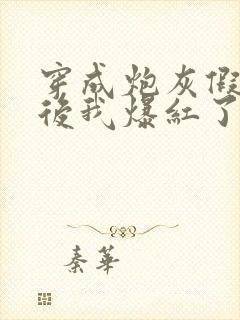 穿成炮灰假
後我爆紅了
秦華